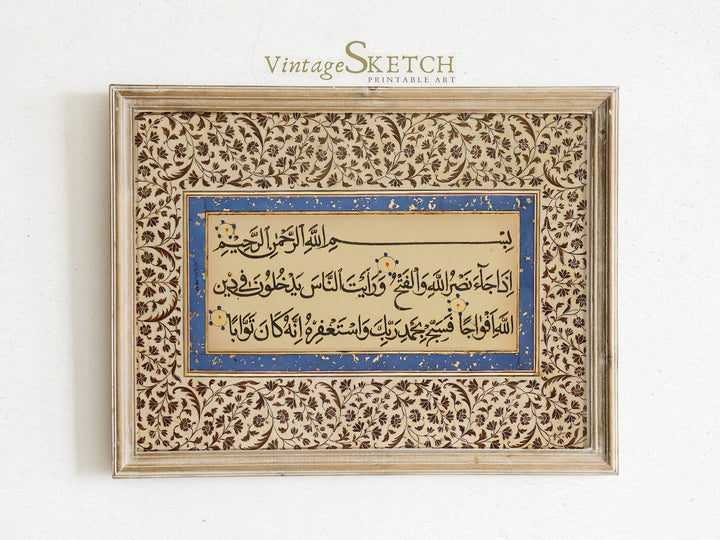 Vintage SKETCH
PRINTABLE ART
بِسْمِ اللَّهِ الرَّحْمَنِ الرَّحِيمِ
اِذَا جَاءَ نَصْرُ اللَّهِ وَالْفَتْحُ وَرَاَيْتَ النَّاسَ يَدْخُلُونَ فِي دِينِ
اللَّهِ اَفْوَاجًا فَسَبِّحْ بِحَمْدِ رَبِّكَ وَاسْتَغْفِرْهُ اِنَّهُ كَانَ تَوَّابًا